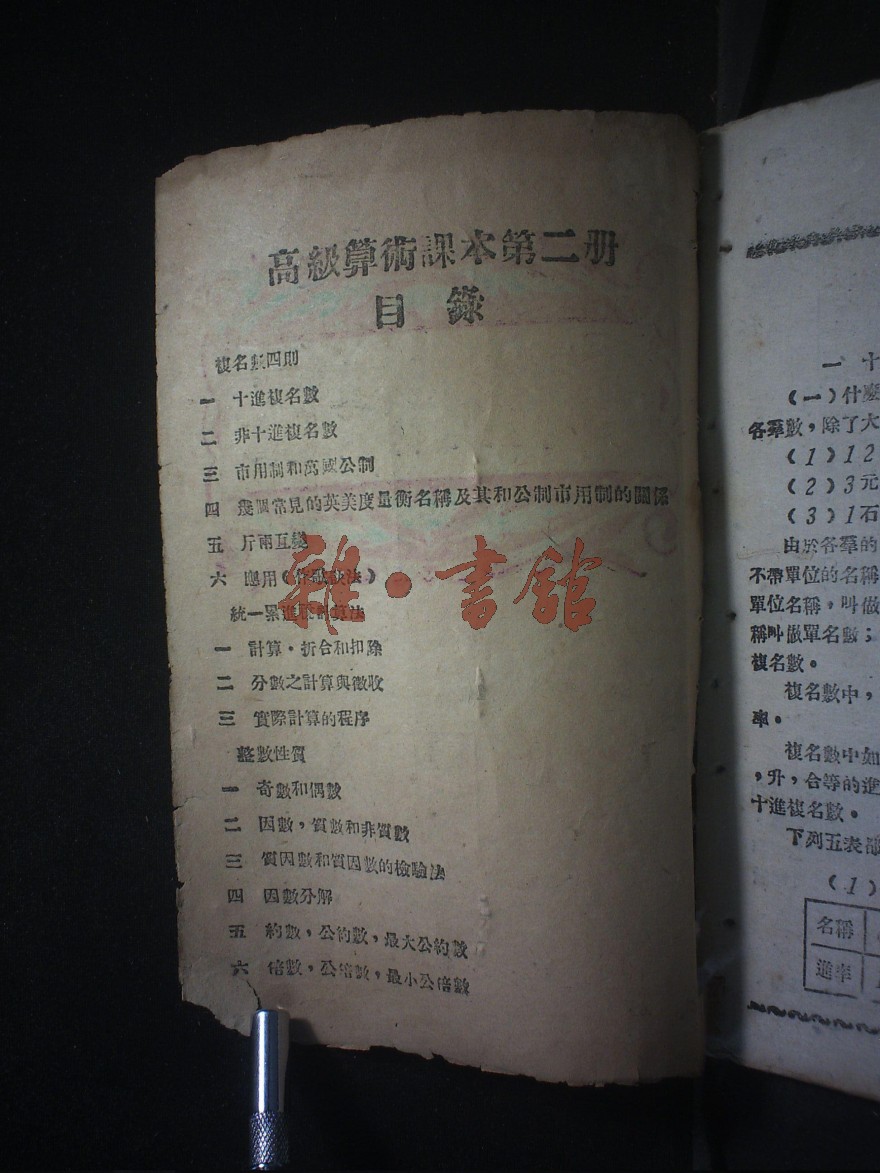 高級算術課本第二册
目錄
複名數四則
一 十進複名數
二 非十進複名數
三 市用制和萬國公制
四 幾個常見的英美度量衡名稱及其和公制市用制的關係
五 斤兩互變
六 應用（ 法）
統一累進 算法
一 計算・折合和扣除
二 分數之計算與徵收
三 實際計算的程序
整數性質
一 奇數和偶數
二 因數，質數和非質數
三 質因數和質因數的檢驗法
四 因數分解
五 約數，公約數，最大公約數
六 倍數，公倍數，最小公倍數
雜・書館
一 十
（一）什麼
各羣數，除了大
（1）12
（2）3元
（3）1石
由於各羣的
不帶單位的名稱
單位名稱，叫做
稱叫做單名數；
複名數。
複名數中，
率。
複名數中如
，升，合等的進
十進複名數。
下列五表都
（1）
名稱
進率